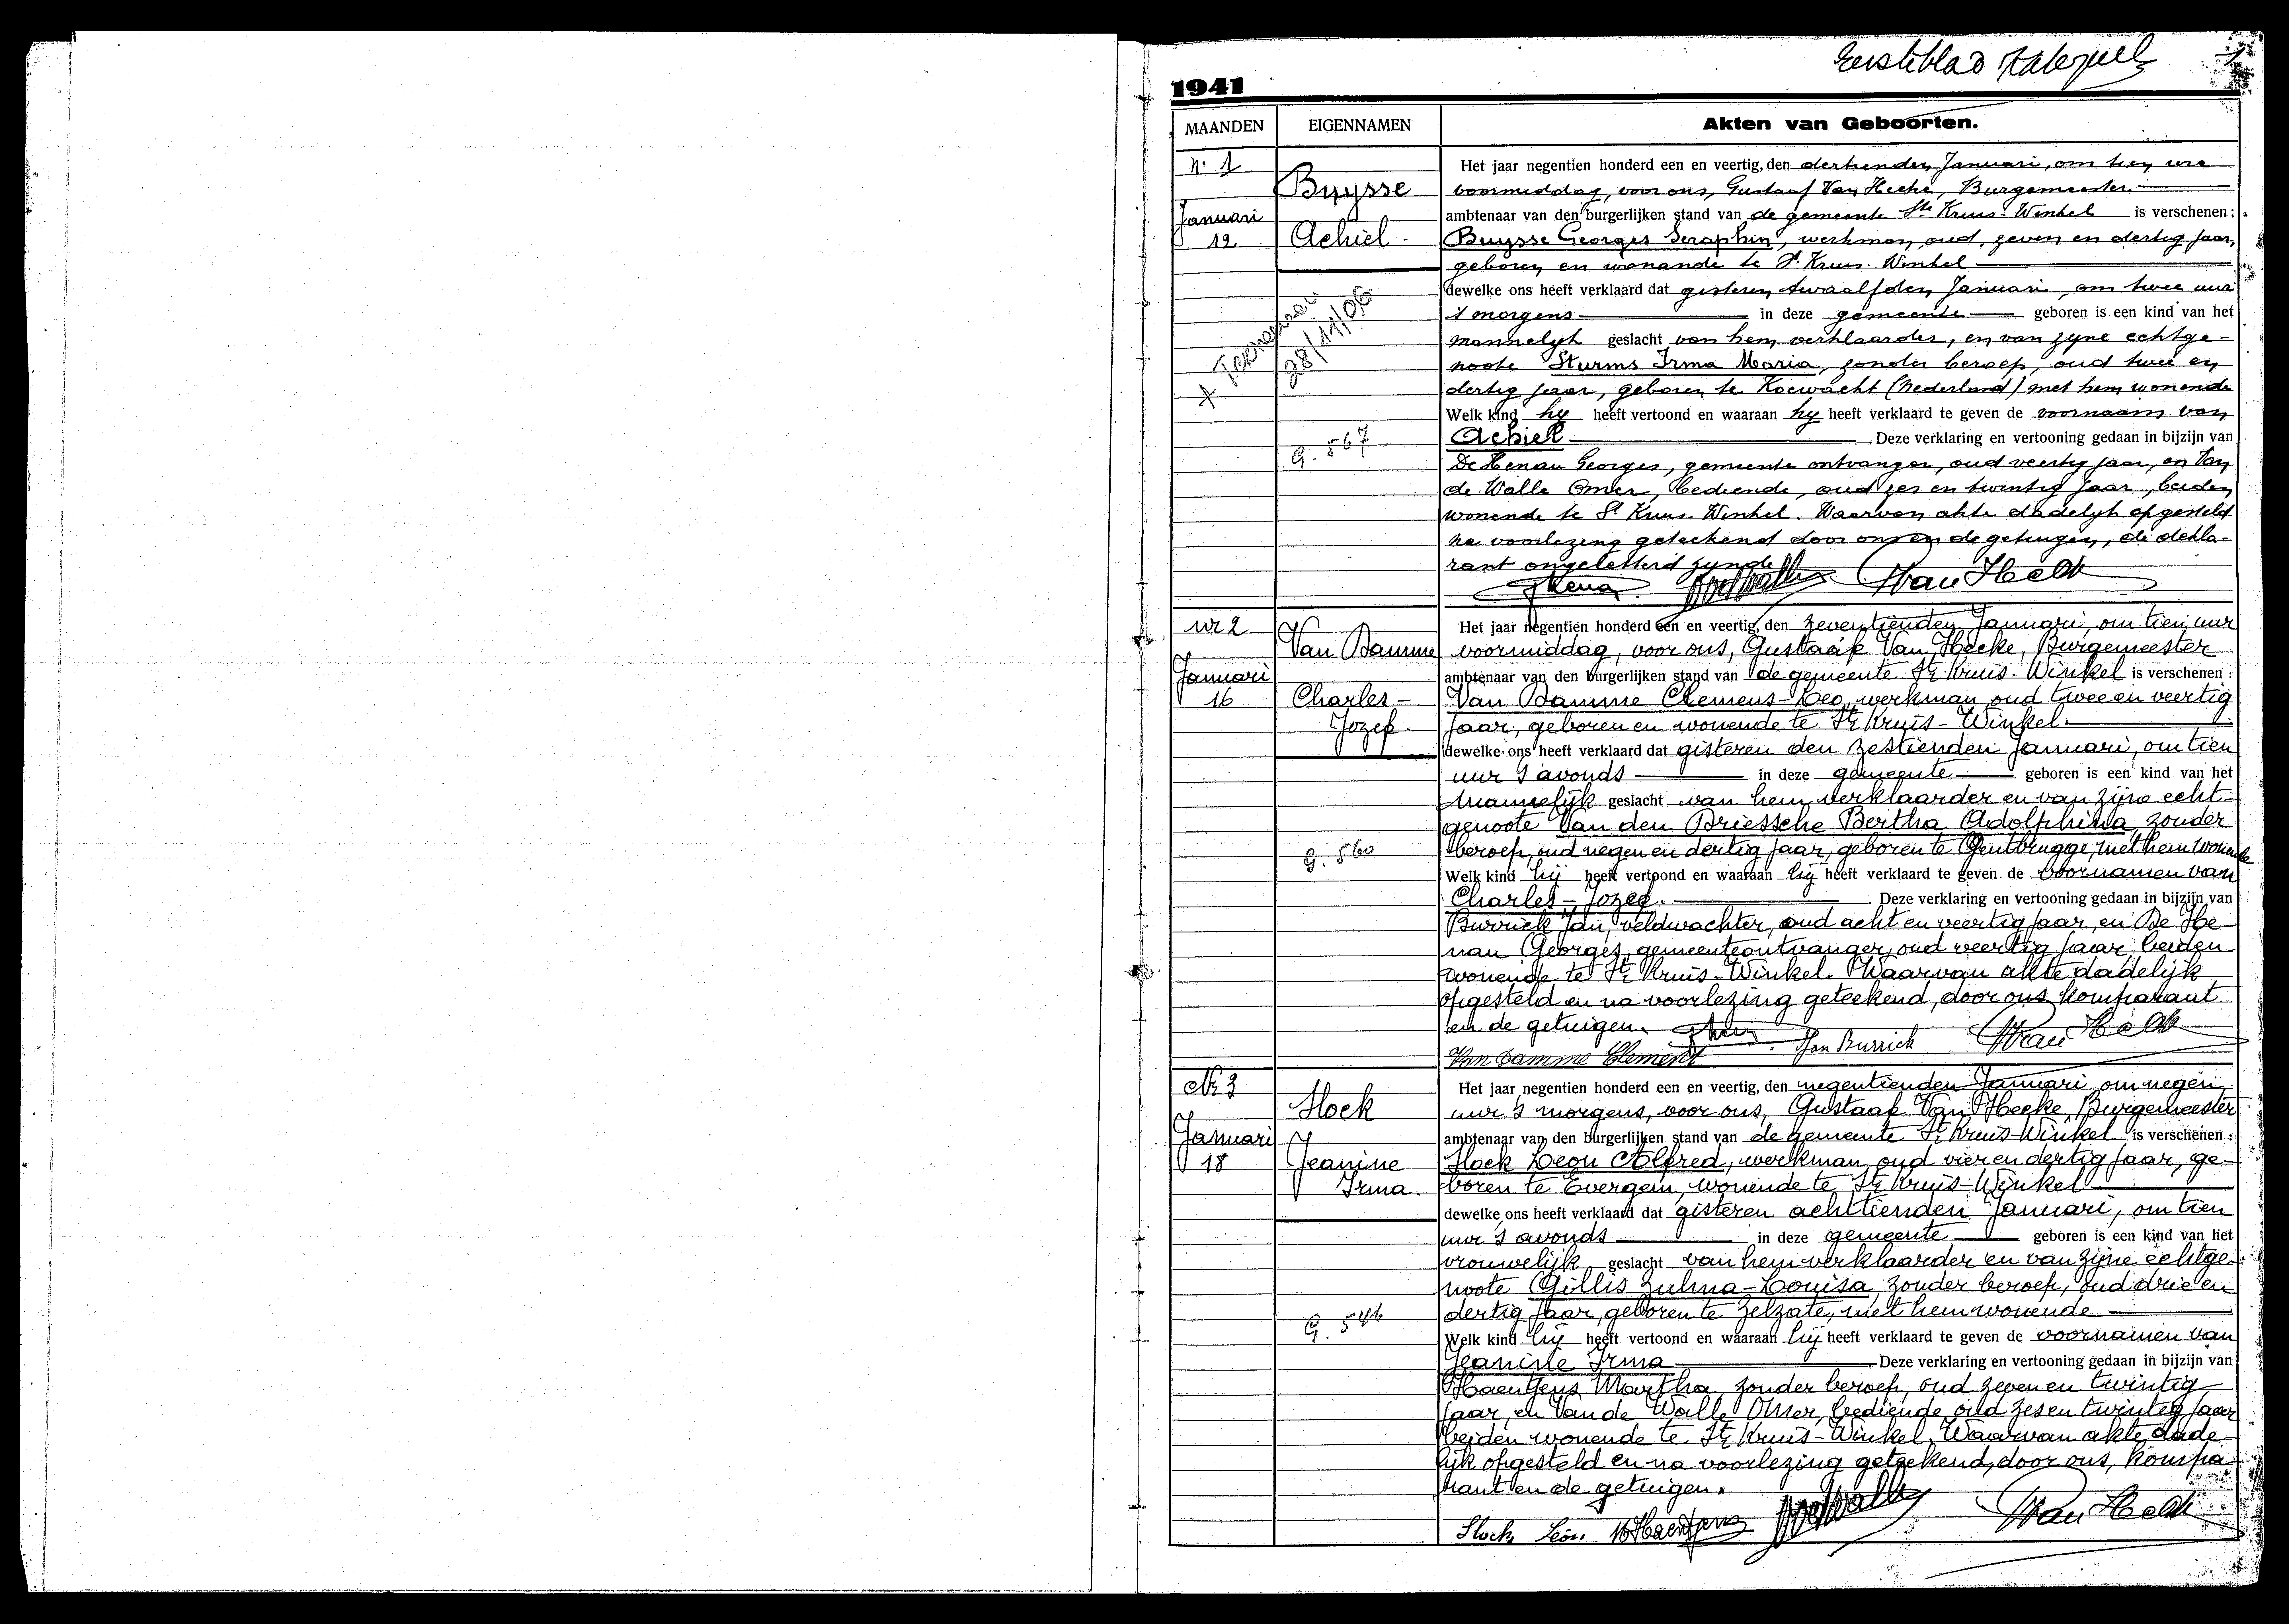 Eersteblad 1
1941
MAANDEN EIGENNAMEN Akten van Geboorten.
n° 1
Buysse
Januari
12
Achiel
28/11/06
G. 567
Het jaar negentien honderd een en veertig, den dertienden Januari, om tien ure
voormiddag, voor ons, Gustaaf Van Hecke, Burgemeester
ambtenaar van den burgerlijken stand van de gemeente Ste Kruis-Winkel is verschenen:
Buysse Georges Seraphin, werkman, oud zeven en dertig jaar,
geboren en wonende te St Kruis-Winkel
dewelke ons heeft verklaard dat gisteren twaalfden Januari, om twee uur
's morgens in deze gemeente geboren is een kind van het
mannelyk geslacht van hem verklaarder, en van zyne echtge-
noote Sturms Irma Maria, zonder beroep, oud twee en
dertig jaar, geboren te Koewacht (Nederland) met hem wonende
Welk kind hy heeft vertoond en waaraan hy heeft verklaard te geven de voornaam van
Achiel Deze verklaring en vertooning gedaan in bijzijn van
De Henau Georges, gemeente ontvanger, oud veertig jaar, en Van
de Walle Omer, bediende, oud zes en twintig jaar, beiden
wonende te St Kruis-Winkel. Waarvan akte dadelyk opgesteld
na voorlezing geteekend door ons en de getuigen, de dekla-
rant ongeletterd zynde
Van Hecke
nr 2
Van Damme
Januari
16
Charles-
Jozef.
G. 560
Het jaar negentien honderd een en veertig, den zeventienden Januari, om tien uur
voormiddag, voor ons, Gustaaf Van Hecke, Burgemeester
ambtenaar van den burgerlijken stand van de gemeente St Kruis-Winkel is verschenen:
Van Damme Clemens-Leo, werkman, oud twee en veertig
jaar, geboren en wonende te St Kruis-Winkel
dewelke ons heeft verklaard dat gisteren den zestienden Januari, om tien
uur 's avonds in deze gemeente geboren is een kind van het
mannelijk geslacht van hem verklaarder en van zijne echt-
genoote Van den Briessche Bertha Adolphina, zonder
beroep, oud negen en dertig jaar, geboren te Gentbrugge, met hem wonende
Welk kind hij heeft vertoond en waaraan hij heeft verklaard te geven de voornamen van
Charles-Jozef. Deze verklaring en vertooning gedaan in bijzijn van
Burrick Jan, veldwachter, oud acht en veertig jaar, en De He-
nau Georges, gemeenteontvanger, oud veertig jaar, beiden
wonende te St Kruis-Winkel. Waarvan akte dadelijk
opgesteld en na voorlezing geteekend, door ons komparant
en de getuigen.
Van Damme Clement Jan Burrick Van Hecke
Nr 3
Slock
Januari
18
Jeanine
Irma
G. 546
Het jaar negentien honderd een en veertig, den negentienden Januari, om negen
uur 's morgens, voor ons, Gustaaf Van Hecke, Burgemeester
ambtenaar van den burgerlijken stand van de gemeente St Kruis-Winkel is verschenen:
Slock Leon Alfred, werkman, oud vier en dertig jaar, ge-
boren te Evergem, wonende te St Kruis-Winkel
dewelke ons heeft verklaard dat gisteren achttienden Januari, om tien
uur 's avonds in deze gemeente geboren is een kind van het
vrouwelijk geslacht van hem verklaarder en van zijne echtge-
noote Gillis Zulma-Louisa, zonder beroep, oud drie en
dertig jaar, geboren te Zelzate, met hem wonende
Welk kind hij heeft vertoond en waaraan hij heeft verklaard te geven de voornamen van
Jeanine Irma Deze verklaring en vertooning gedaan in bijzijn van
Haentjens Martha, zonder beroep, oud zeven en twintig
jaar, en Van de Walle Omer, bediende, oud zes en twintig jaar
beiden wonende te St Kruis-Winkel. Waarvan akte dade-
lijk opgesteld en na voorlezing geteekend, door ons, kompa-
rant en de getuigen.
Slock Léon. M Haentjens Van Hecke